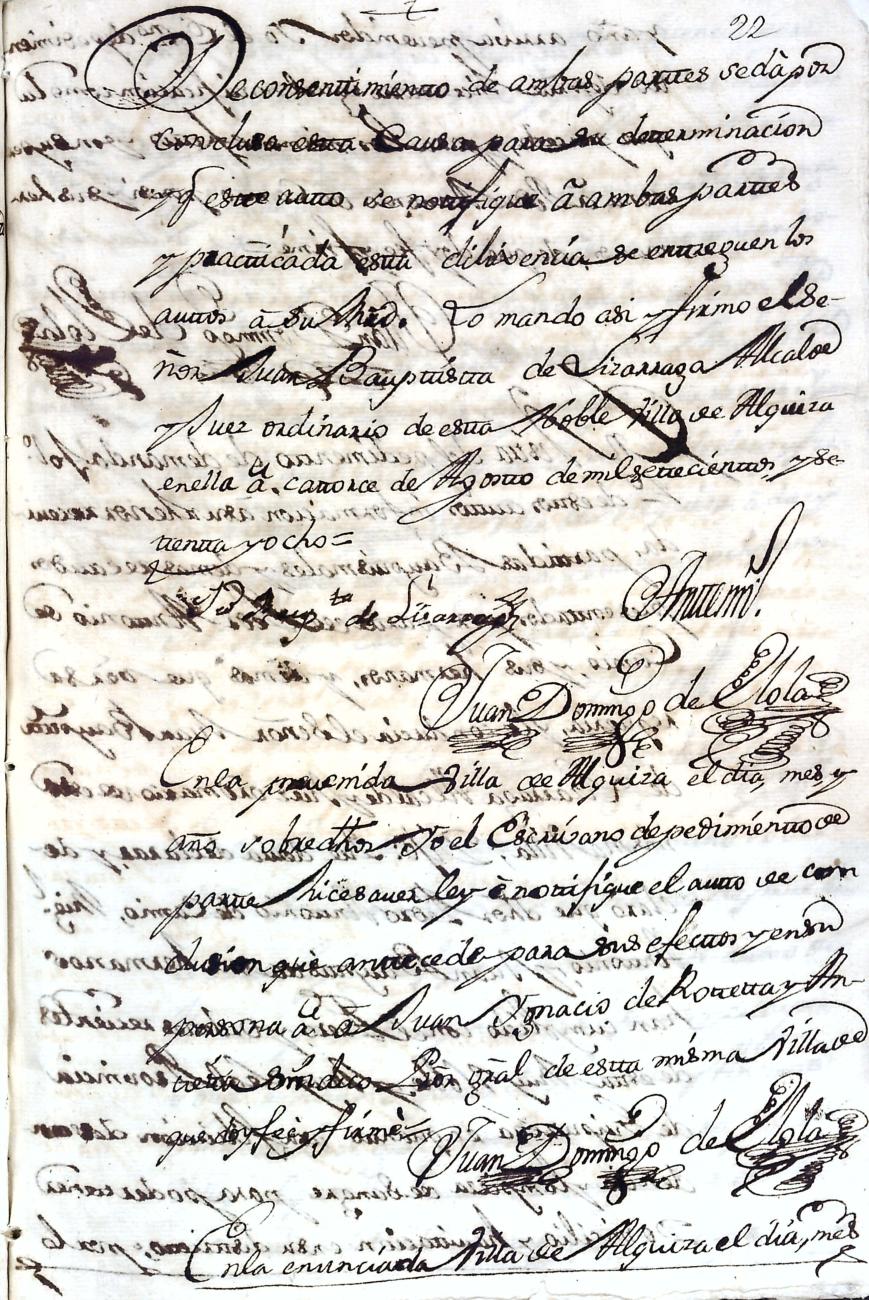 22
De consentimiento de ambas partes se dà por
conclusa esta Causa para su determinacion
y q̃ este auto se notifique â ambas partes
y practicada esta dilixencia se entreguen los
autos â su Mrd. Lo mando asi y firmo el Se-
ñor Juan Bauptista de Lizarraga Alcalde
y Juez ordinario de esta Noble Villa de Alquiza
en ella â catorce de Agosto de mil setecientos y se-
tenta y ocho=
Jn Baupta de Lizarraga
Ante mi
Juan Domingo de Elola
En la prevenida Villa de Alquiza el dia, mes, y
año sobredhos Yo el Escrivano de pedimiento de
parte hice saver ley è notifique el auto de con
clusion que antecede para sus efectos y en su
persona â Juan Ygnacio de Rotetta y An-
cieta Sindico Pror gral de esta misma Villa de
que doy fee y firmè=
Juan Domingo de Elola
En la enunciada Villa de Alquiza el dia, mes